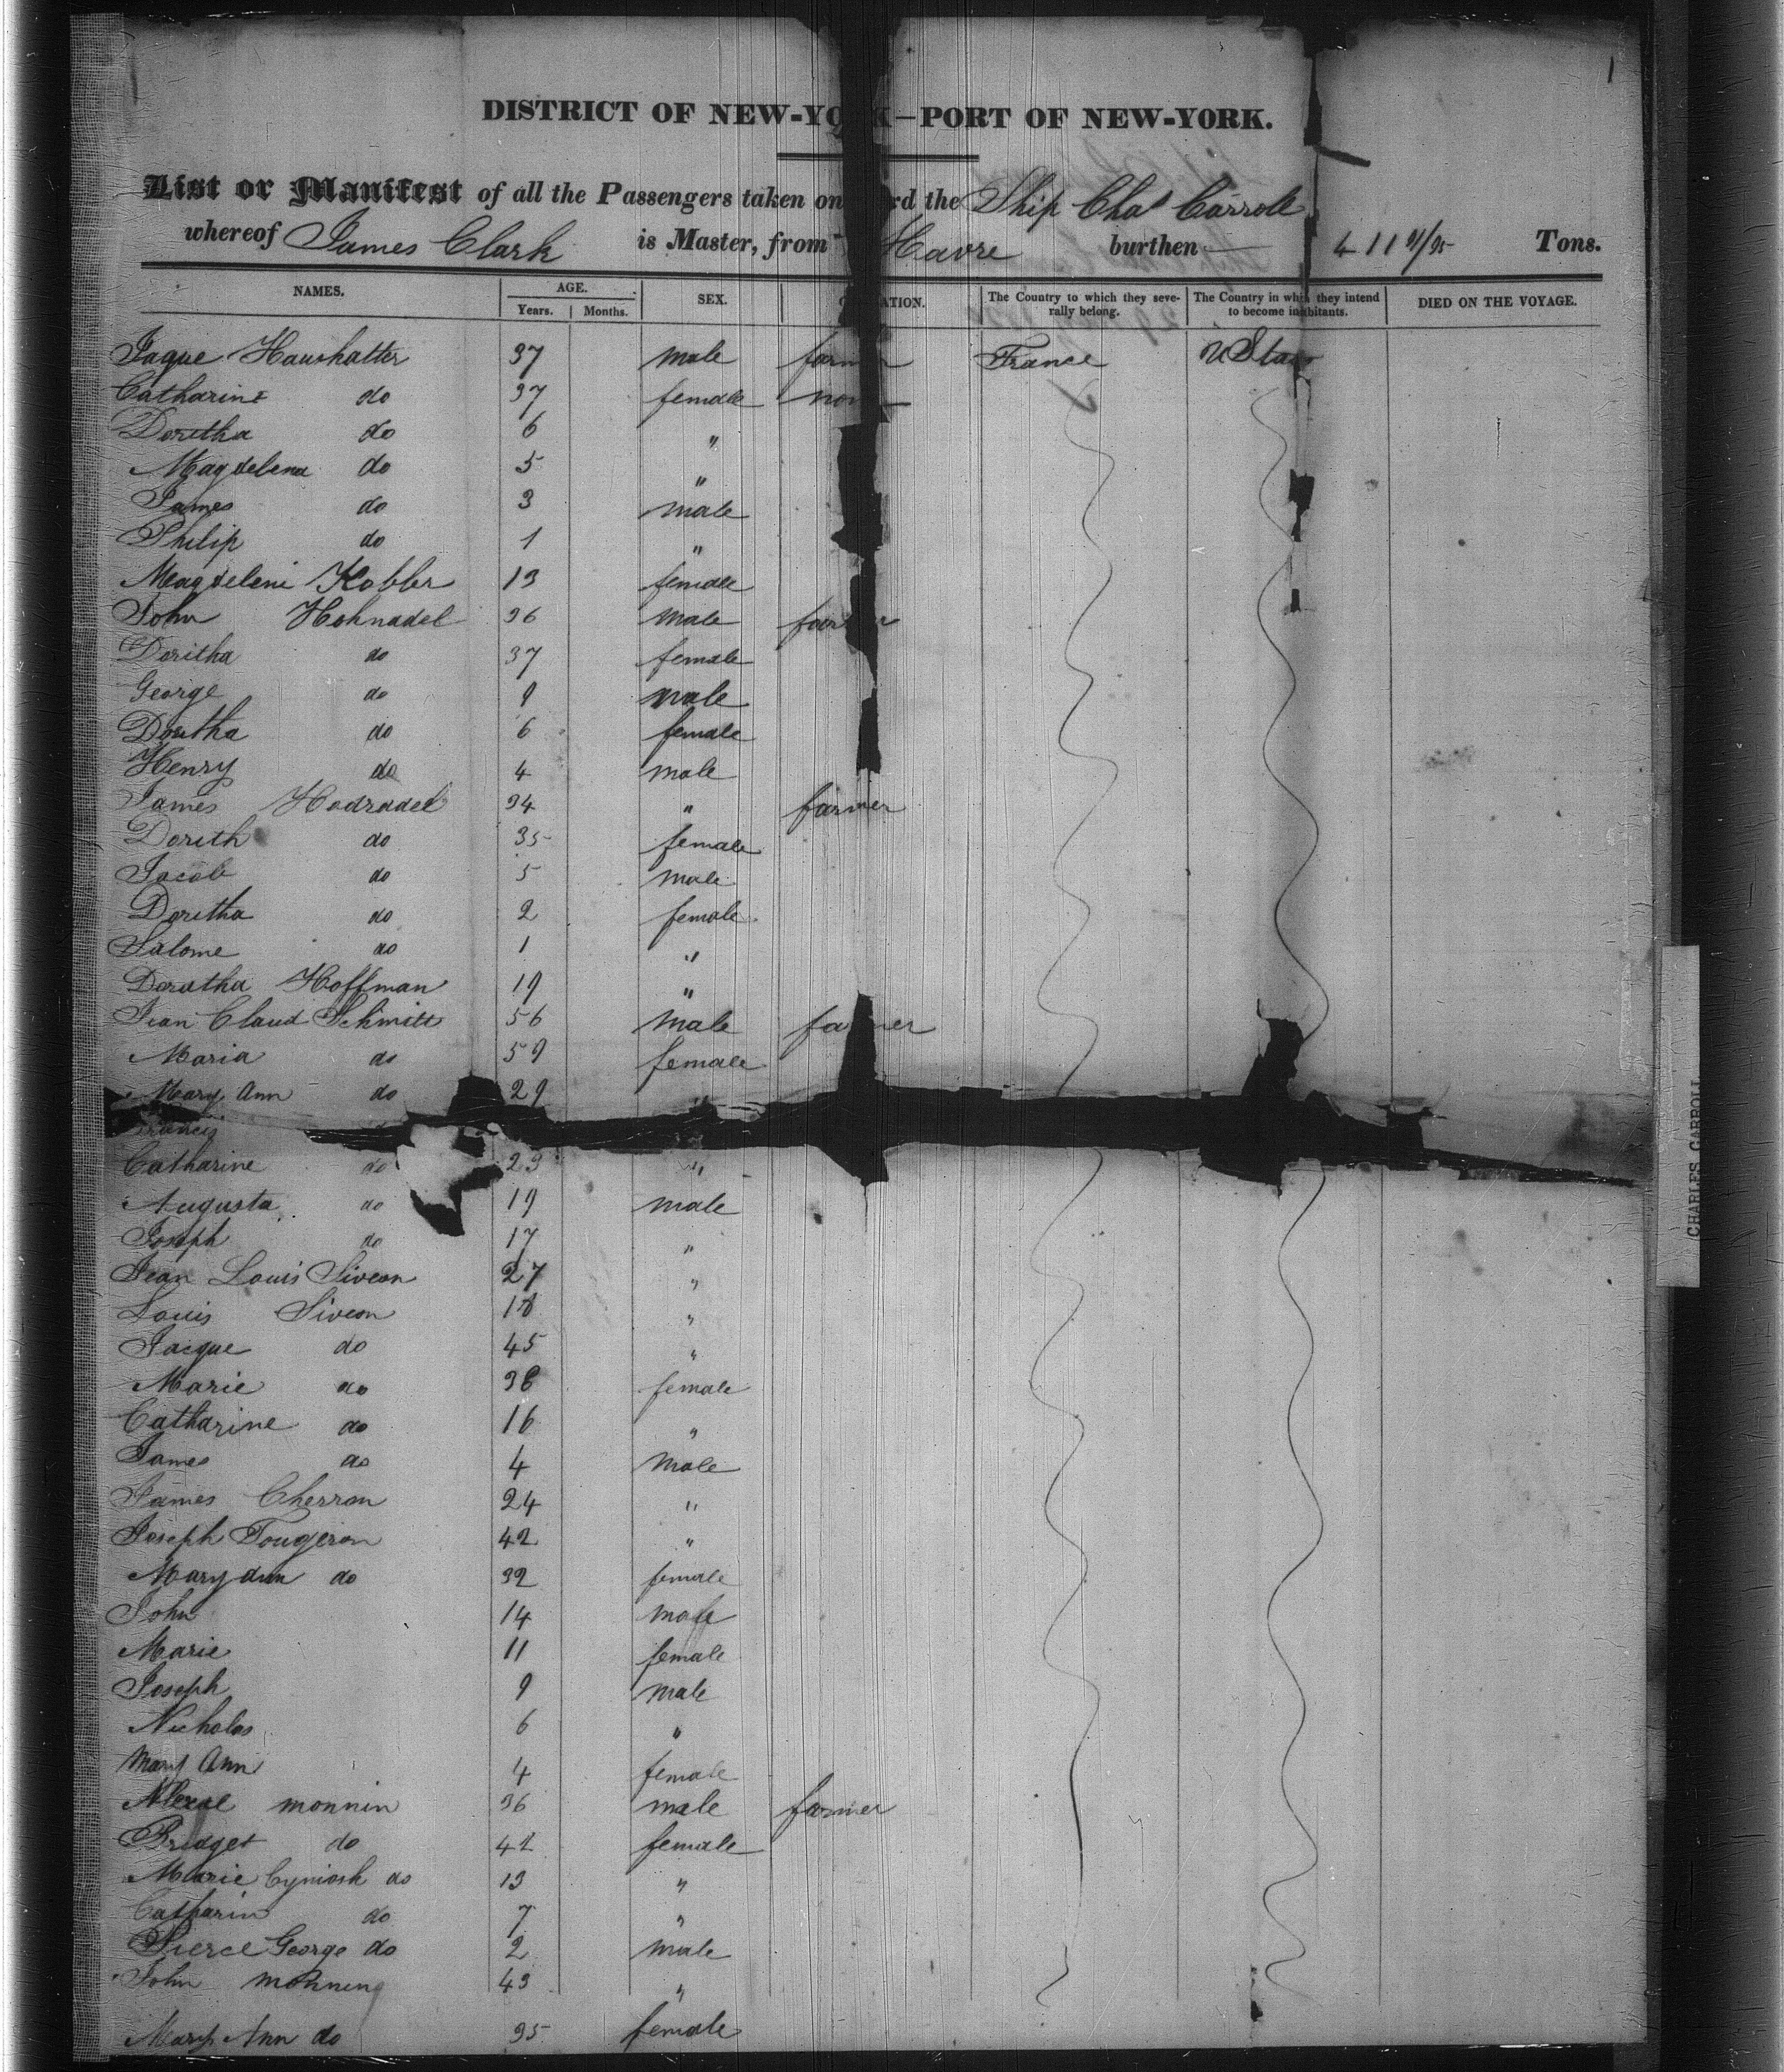 1
DISTRICT OF NEW-YO K—PORT OF NEW-YORK.
List or Manifest of all the Passengers taken on rd the Ship Chas Carroll
whereof James Clark is Master, from Havre burthen 411 91/95 Tons.
NAMES. AGE. SEX. ATION. The Country to which they seve- The Country in which they intend DIED ON THE VOYAGE.
Years. Months. rally belong. to become inhabitants.
Jaque Haushalter 37 male farmer France U Stas
Catharine do 37 female non
Doritha do 6 "
Magdelena do 5 "
James do 3 male
Philip do 1 "
Magdeleni Kobler 13 female
John Hohnadel 36 male farmer
Doritha do 37 female
George do 9 male
Doritha do 6 female
Henry do 4 male
James Hodradel 34 " farmer
Dorith do 35 female
Jacob do 5 male
Doritha do 2 female
Salome do 1 "
Doratha Hoffman 19 "
Jean Claud Schmitt 56 male farmer
Maria do 59 female
Mary Ann do 29
Francis
Catharine do 23 "
Augusta do 19 male
Joseph do 17 "
Jean Louis Siveon 27 "
Louis Siveon 18 "
Jacque do 45 "
Marie do 38 female
Catharine do 16 "
James do 4 male
James Cherron 24 "
Joseph Tougeron 42 "
Mary ann do 32 female
John 14 male
Marie 11 female
Joseph 9 male
Nicholas 6 "
Mary Ann 4 female
monnin 36 male farmer
Bridget do 42 female
Marie do 13 "
Catharin do 7 "
Pierce George do 2 male
John Monning 43 "
Mary Ann do 35 female
CHARLES CARROLL